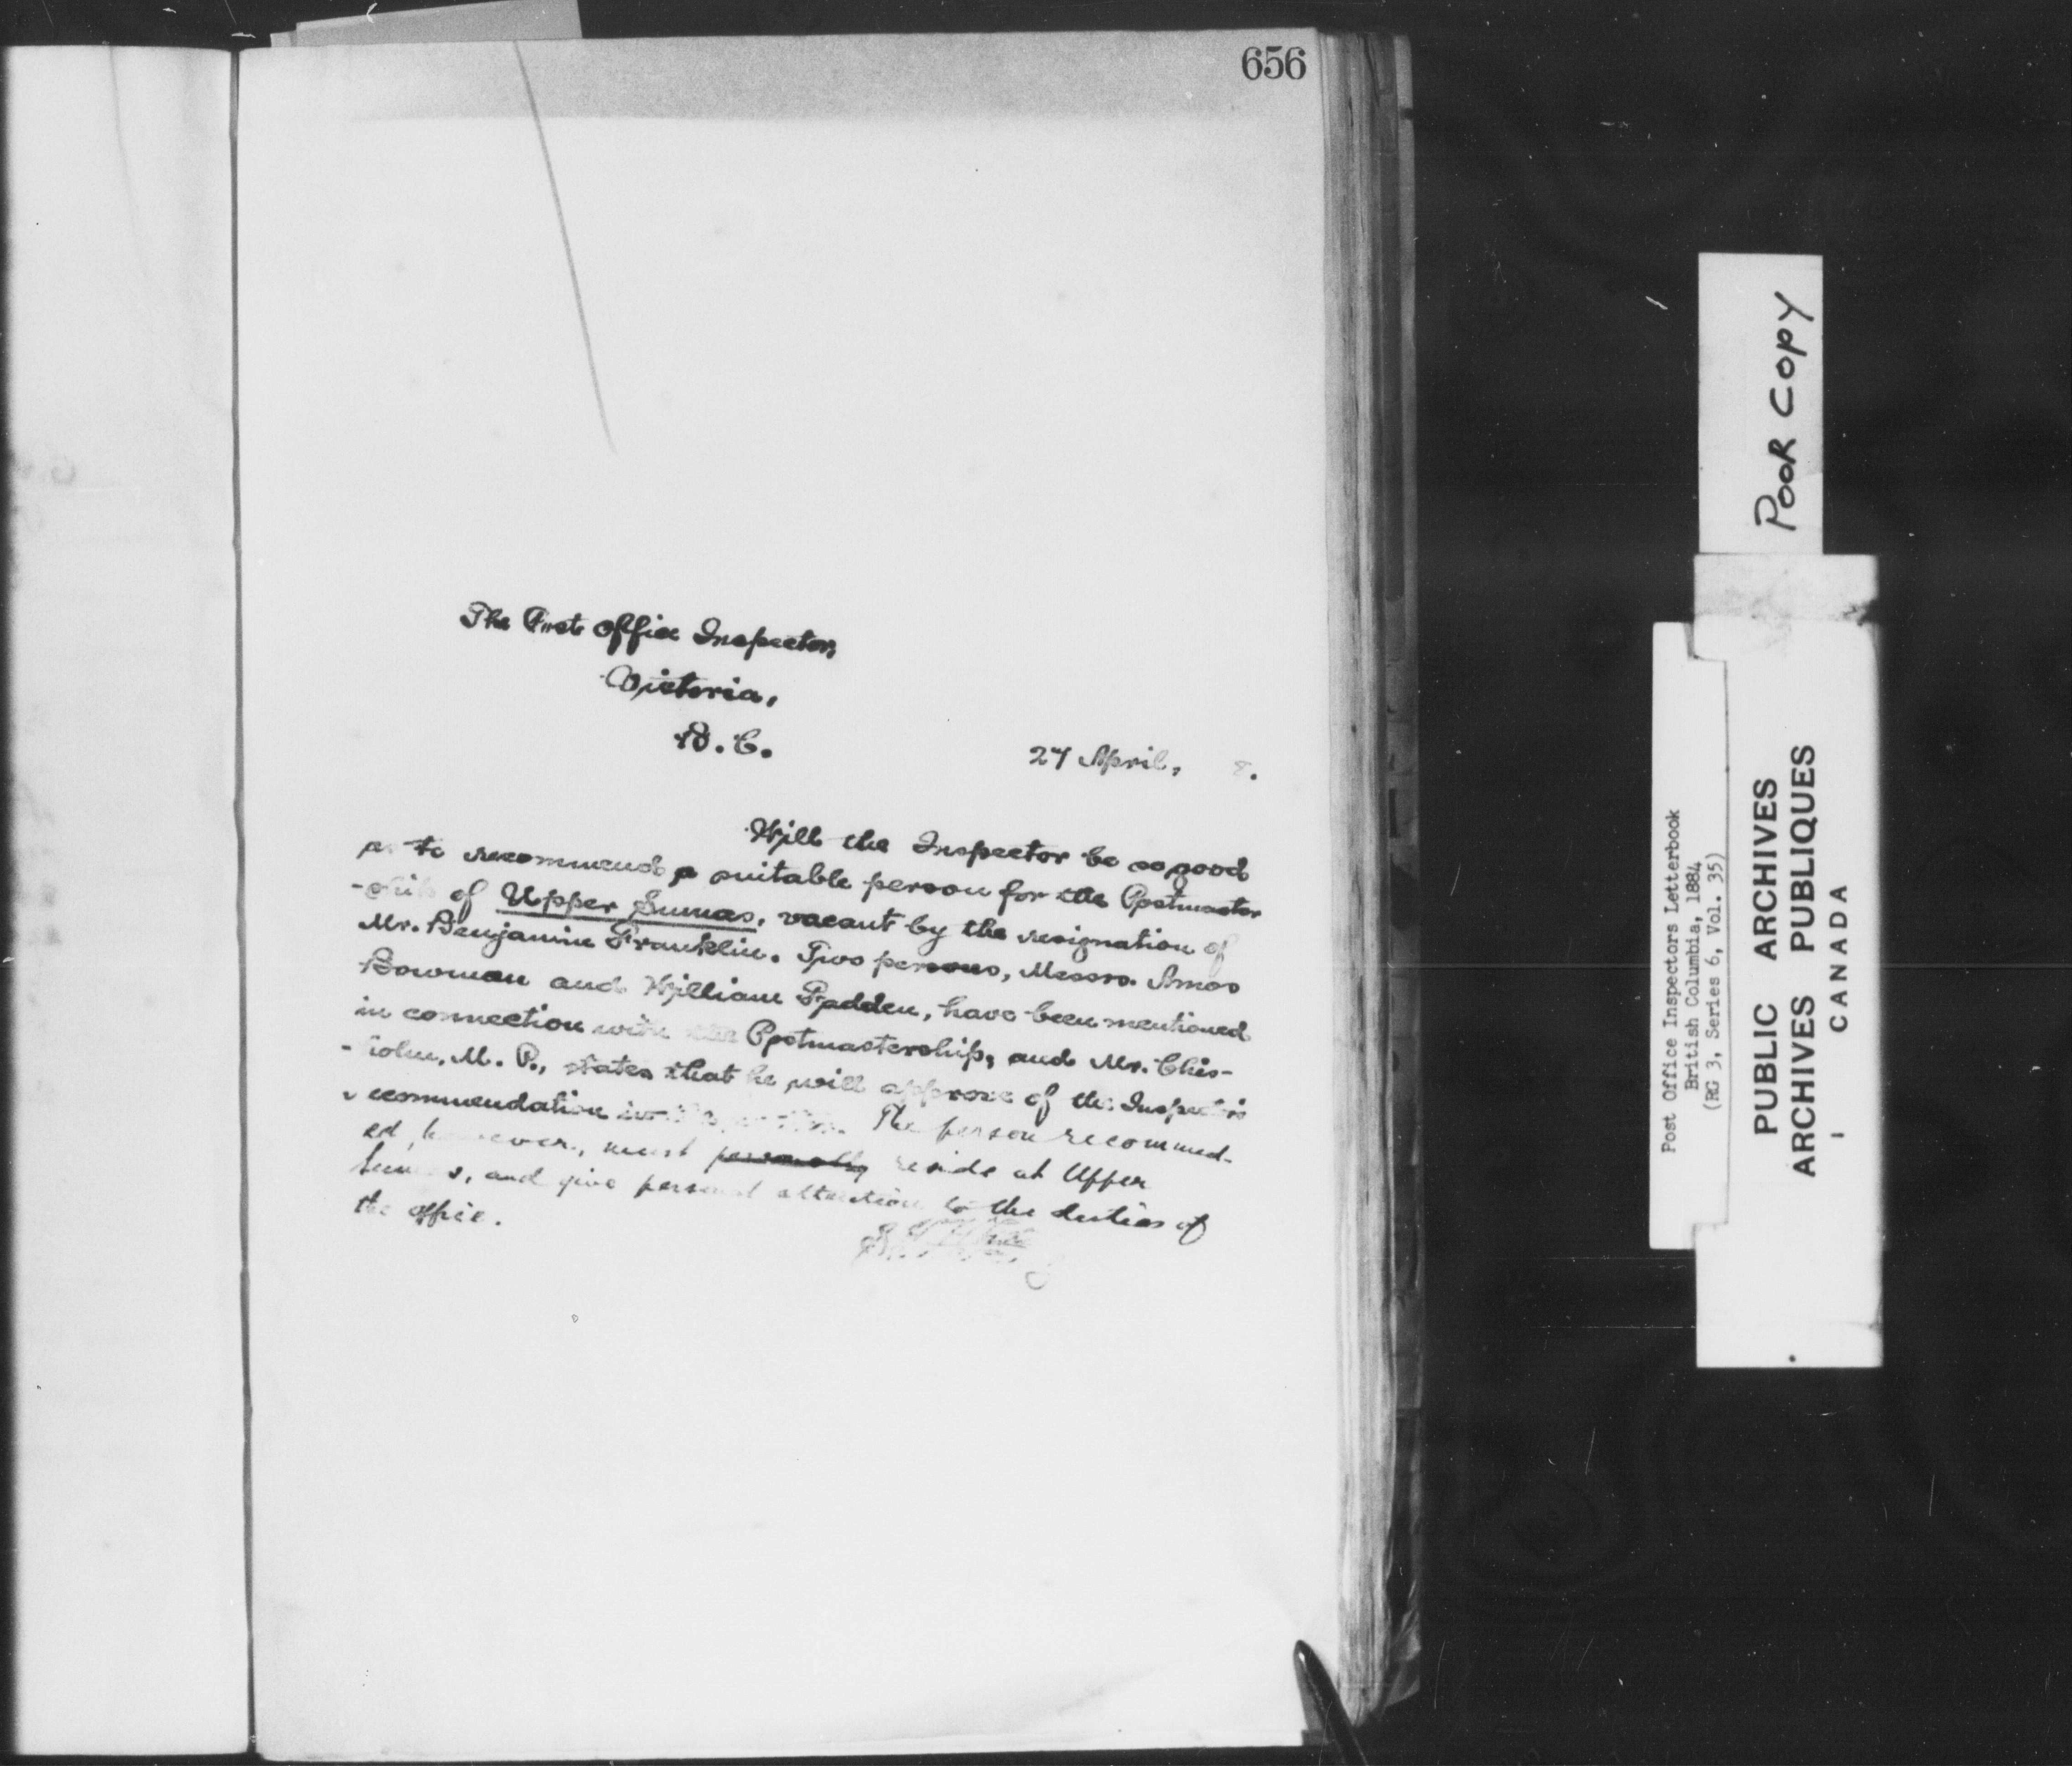 656
The Post Office Inspector,
Victoria,
B. C.
27 April, 8.
Will the Inspector be so good
as to recommend a suitable person for the Postmaster
-ship of Upper Sumas, vacant by the resignation of
Mr. Benjamin Franklin. Two persons, Messrs. Amos
Bowman and William Fadden, have been mentioned
in connection with the Postmastership, and Mr. Chis-
-holm, M. P., states that he will approve of the Inspector's
recommendation The person recommend-
ed, however, must personally reside at Upper
Sumas, and give personal attention to the duties of
the office.
POOR COPY
Post Office Inspectors Letterbook
British Columbia, 1884
(RG 3, Series 6, Vol. 35)
PUBLIC ARCHIVES
ARCHIVES PUBLIQUES
CANADA